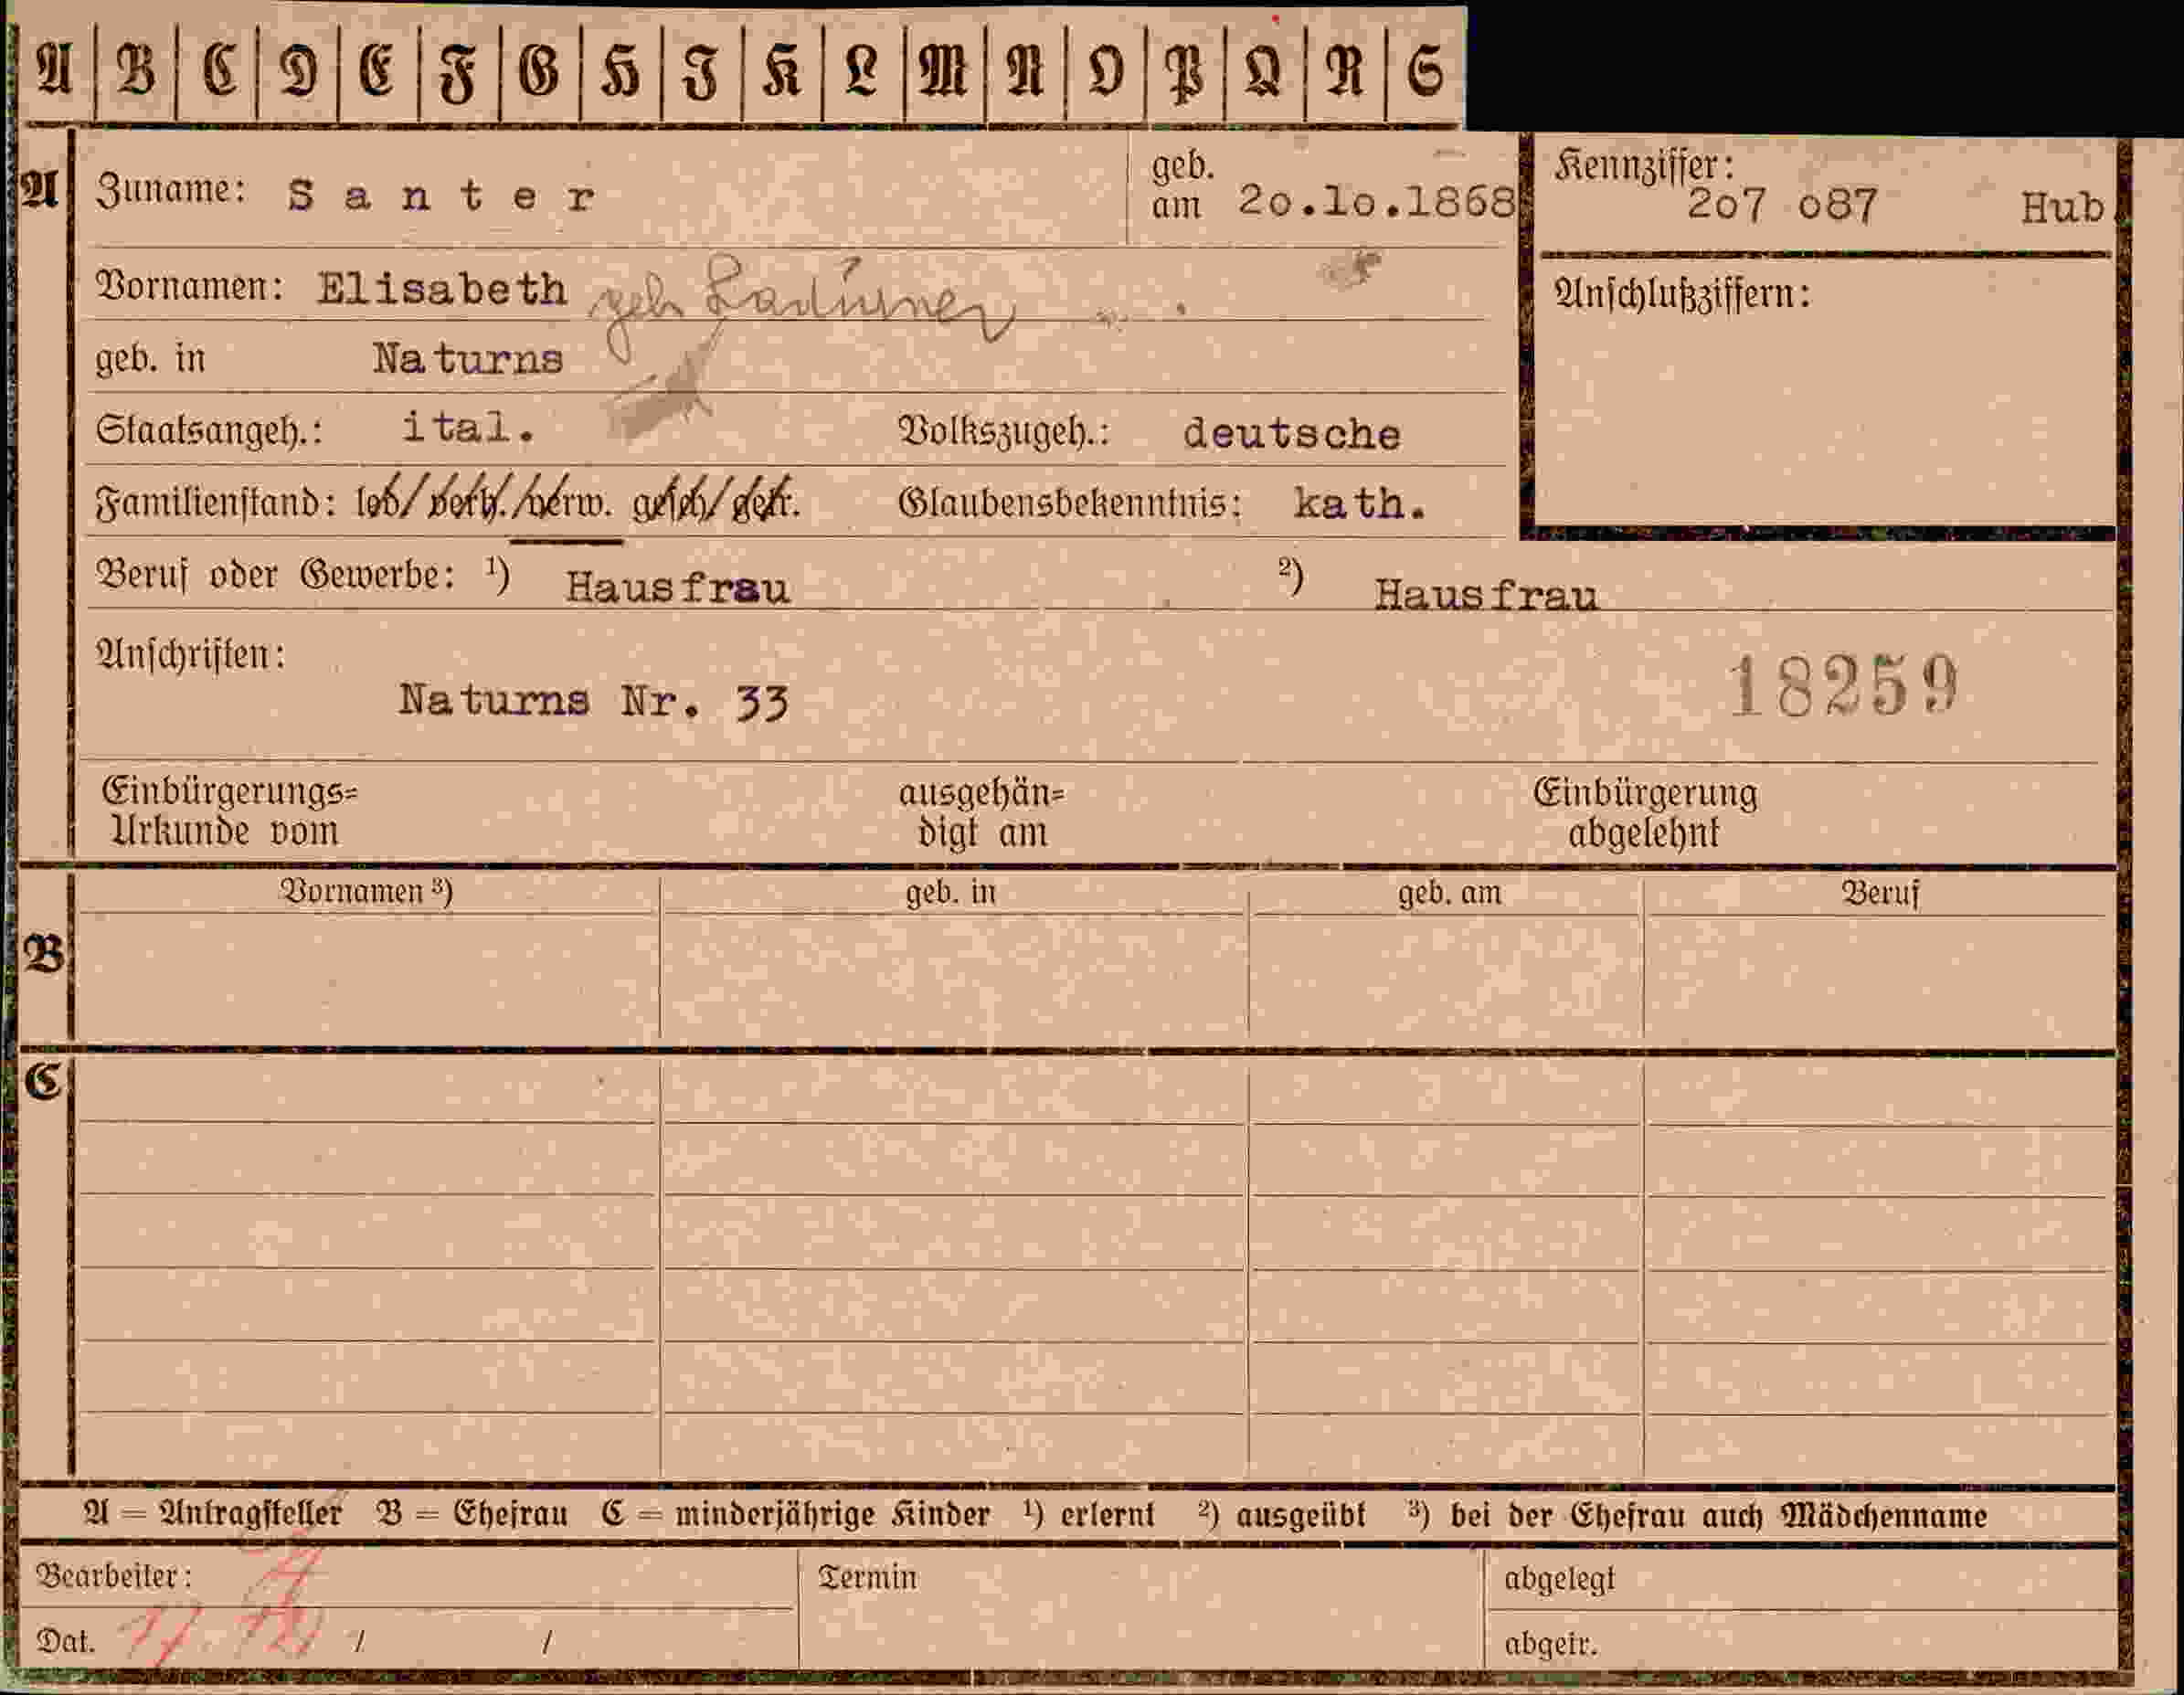 A B C D E F G H I K L M N O P Q R S
A Zuname: Santer geb. am 2o.1o.1868 Kennziffer: 2o7 o87 Hub
Vornamen: Elisabeth geb Ladurner Anschlußziffern:
geb. in Naturns
Staatsangeh.: ital. Volkszugeh.: deutsche
Familienstand: led/verh./verw. gesch/getr. Glaubensbekenntnis: kath.
Beruf oder Gewerbe: ¹) Hausfrau ²) Hausfrau
Anschriften:
Naturns Nr. 33 18259
Einbürgerungs= ausgehän= Einbürgerung
Urkunde vom digt am abgelehnt
Vornamen ³) geb. in geb. am Beruf
B
C
A = Antragsteller B = Ehefrau C = minderjährige Kinder ¹) erlernt ²) ausgeübt ³) bei der Ehefrau auch Mädchenname
Bearbeiter: Termin abgelegt
Dat. / / abgetr.